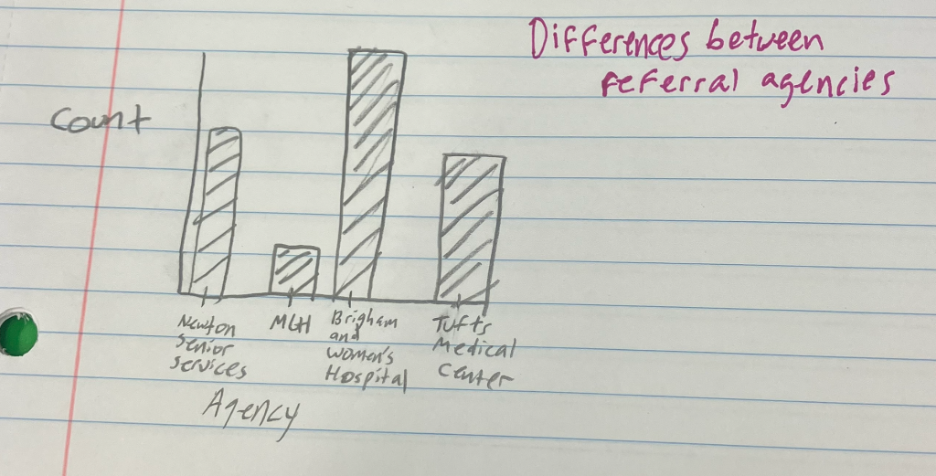 Differences between
referral agencies
Count
Newton
Senior
Services
MGH
Brigham
and
Women's
Hospital
Tufts
Medical
Center
Agency